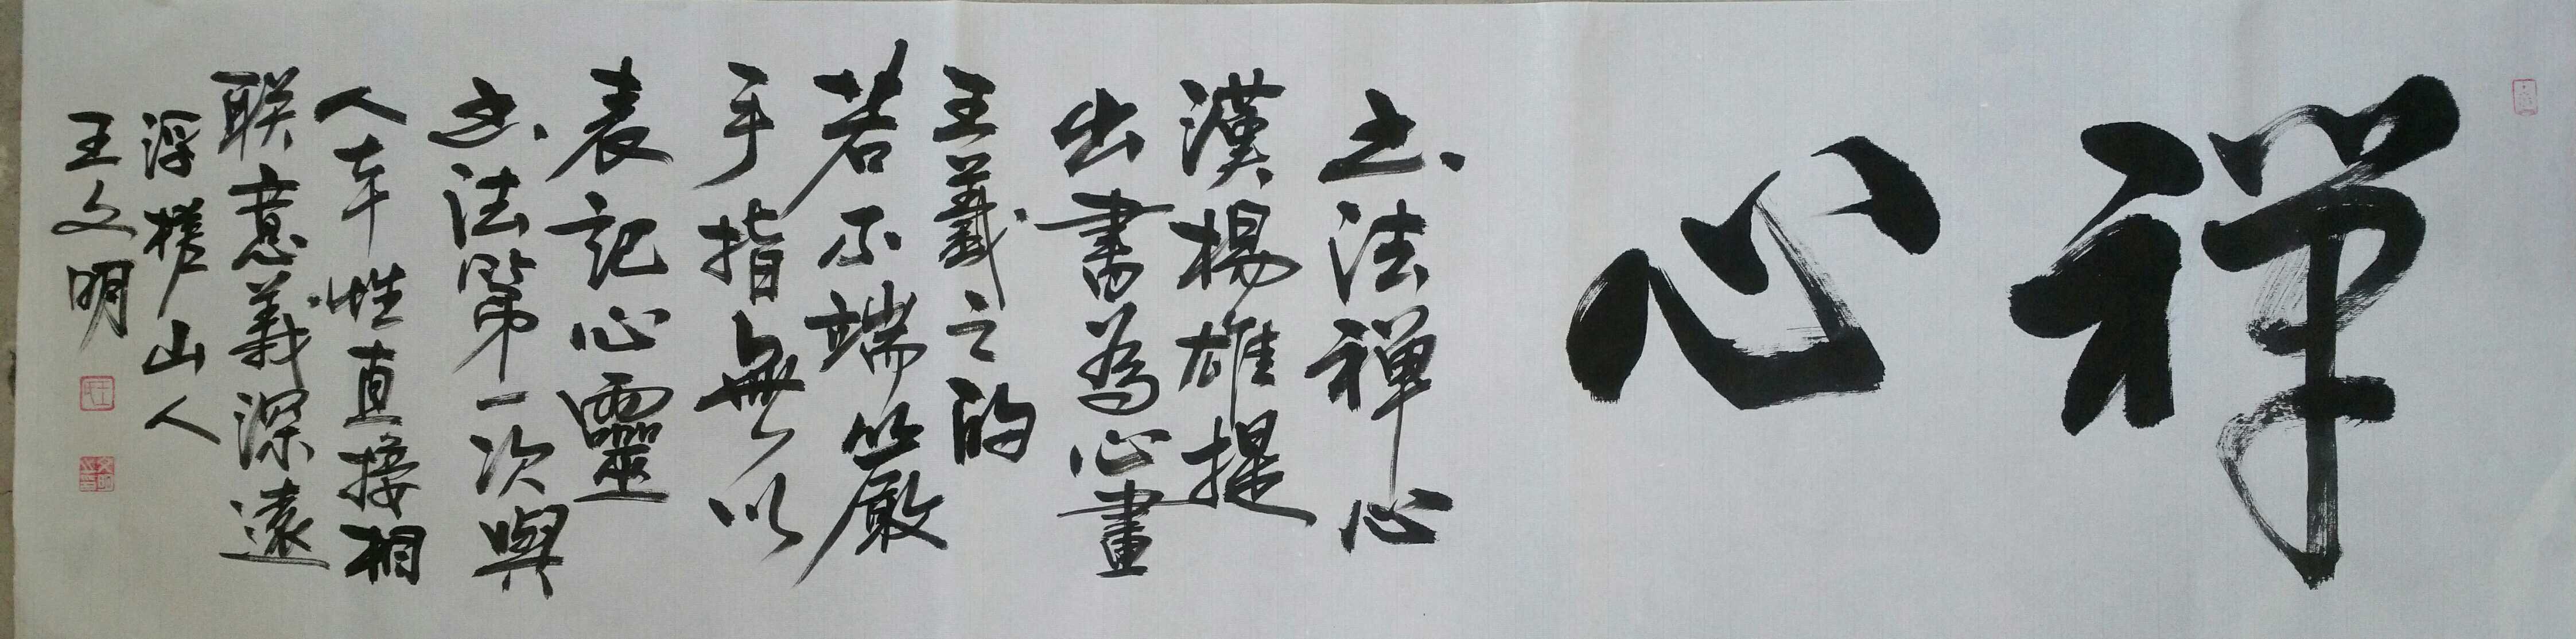 禅心
书法禅心
漢楊雄提
出書為心畫
王羲之的
若不端嚴
手指無以
表記心靈
书法第一次與
人本性直接相
联意義深遠
浮槎山人
王文明